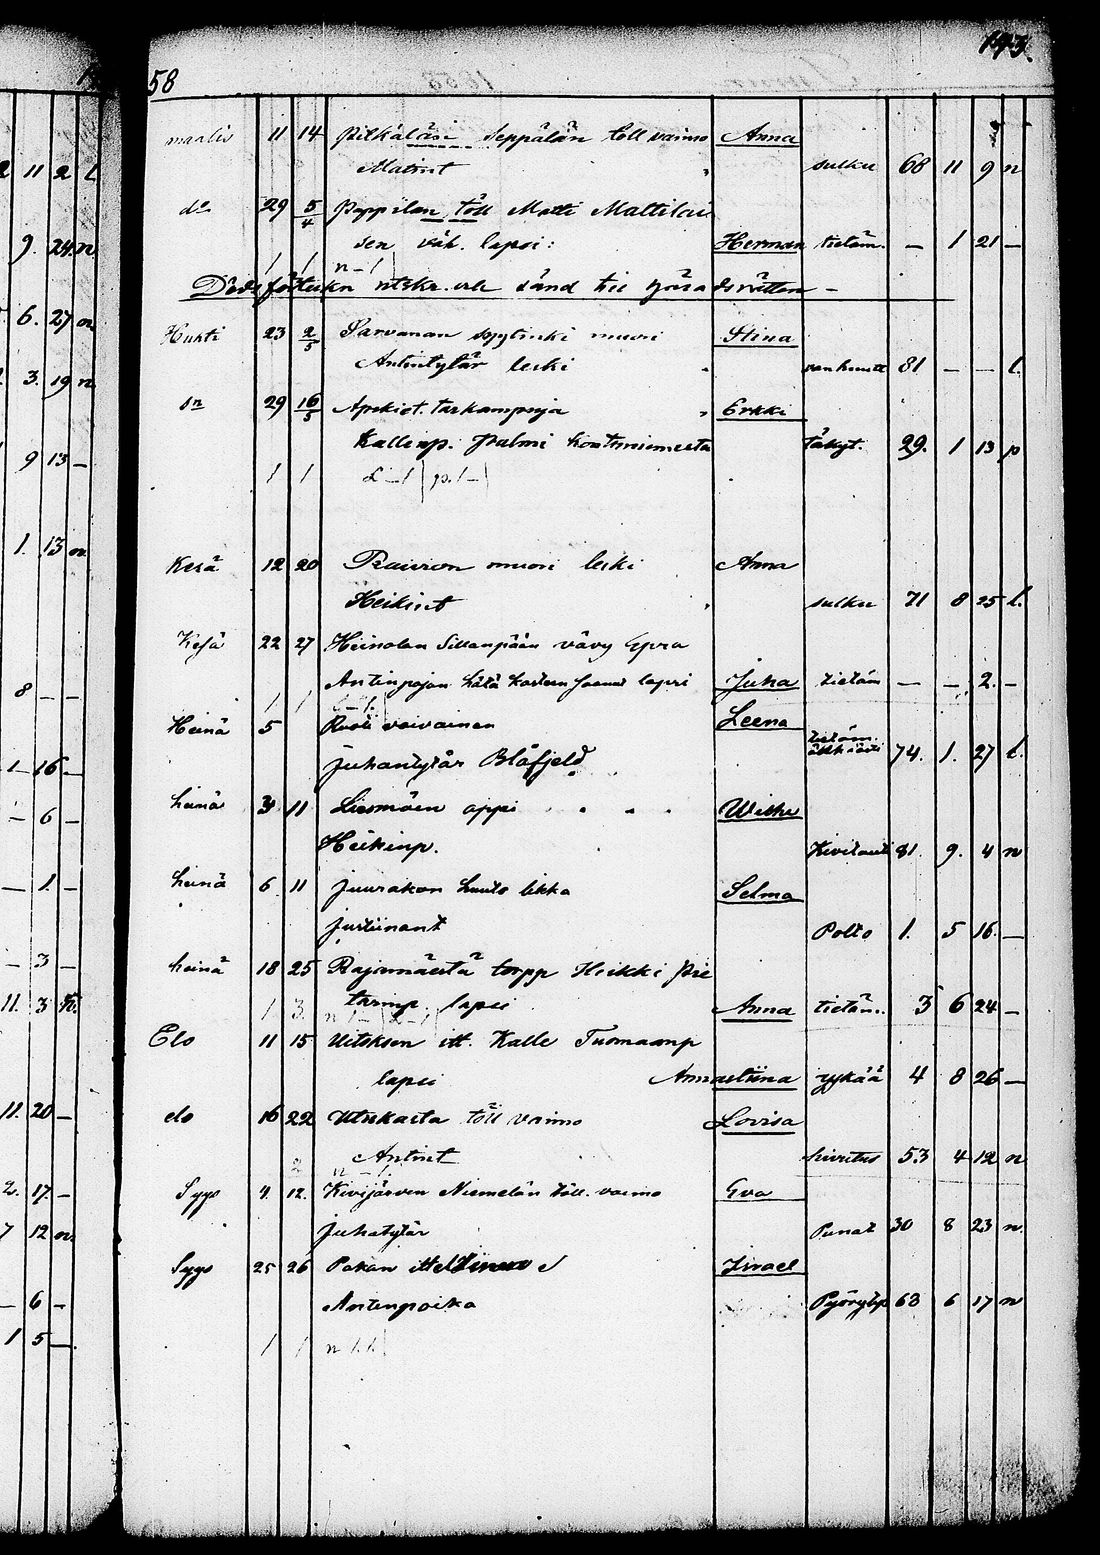 193.
58
maalis 11 14 Pitkäläsi Seppälän töll vaimo Anna
Matint sulku 68 11 9 n
do 29 5/4 Pappilan töll Matti Mattilai
sen väh. lapsi: Herman tietäm. — 1 21 —
1 1 n – 1
utskr. och sänd till Häradsrätten –
Huhti 23 2/5 Sarvanan muori Stina
Antintytär leski vanhuutt 81 — — l.
dn 29 16/5 Erkki
Kallenp. Palmi 29. 1 13 p
1 1
Kesä 12 20 Rauvon muori leski Anna
Heikint sulku 71 8 25 l.
Kesä 22 27 Heinolan Sillanpään vävy Epra
Antinpojan hätä kasteen saanut lapsi Juha tietäm — — 2. —
1 1
Heinä 5 Ruoti vaivainen Leena
Juhantytär Blåfjeld tietäm. äkkiästi 74. 1. 27 l.
heinä 3 11 Liesmäen appi Wilhe
Heikinp. Kivitauti 81. 9. 4 n
heinä 6 11 Juurakon huuto likka Selma
Justiinant Polto 1. 5 16. —
heinä 18 25 Rajamäestä torpp Heikki Pie
tarinp lapsi Anna tietäm. 3 6 24 —
1 3.
Elo 11 15 Uitoksen itt. Kalle Tuomaanp
lapsi Annastiina rykää 4 8 26 —
elo 16 22 töll vaimo Lovisa
Antint hivitus 53 4 12 n
2 n – 1.
Syys 4. 12. Kivijärven Niemelän töll. vaimo Eva
Juhatytär Punat 30 8 23 n.
Syys 25 26 Pakan itt Israel
Antinpoika 63 6 17 n
1 1 n 1.1
2 11 2 l
9. 24. n
6. 27 n
3. 19 n
9 13 —
1. 13 n
8 — —
1 — 16 —
— 6 —
— 1. —
— 3 —
11. 3
11. 20 —
2. 17. —
7 12 n
— 6 —
1 5 —